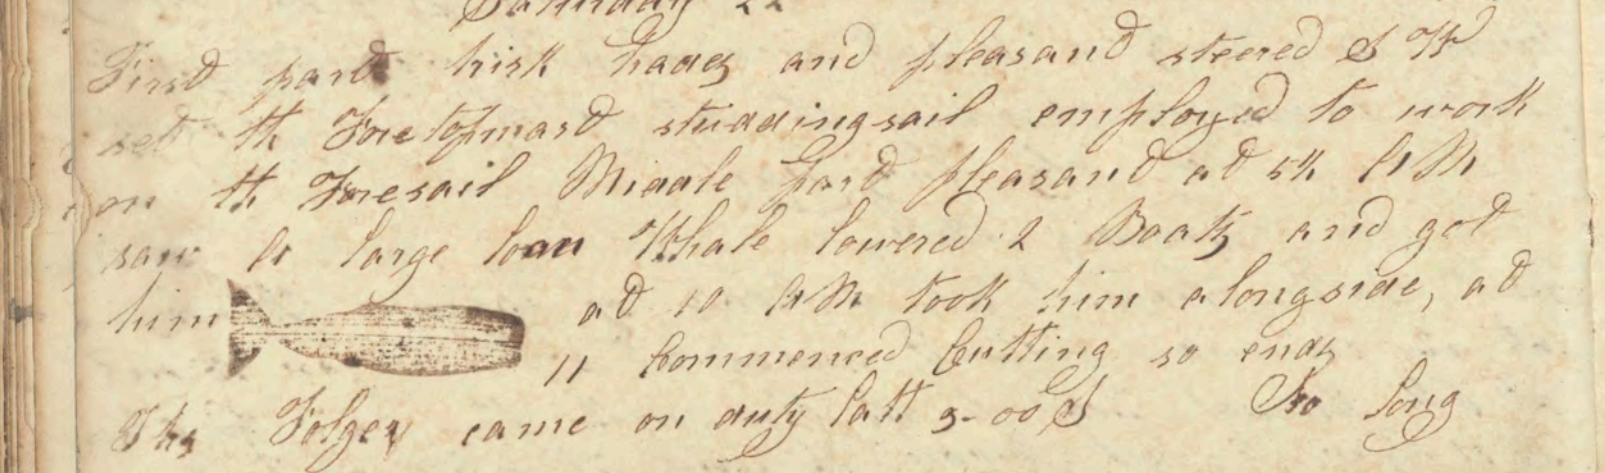 Saturday 22
First part brisk trades and pleasand steered S W
set th Foretopmast studdingsail employed to work
on th Foresail Middle part pleasand at 5h AM
saw a large lone Whale lowered 2 Boats and got
him at 10 AM took him alongside, at
11 Commenced Cutting so ends
Ths Folger came on duty Latt 3-00 S No Long